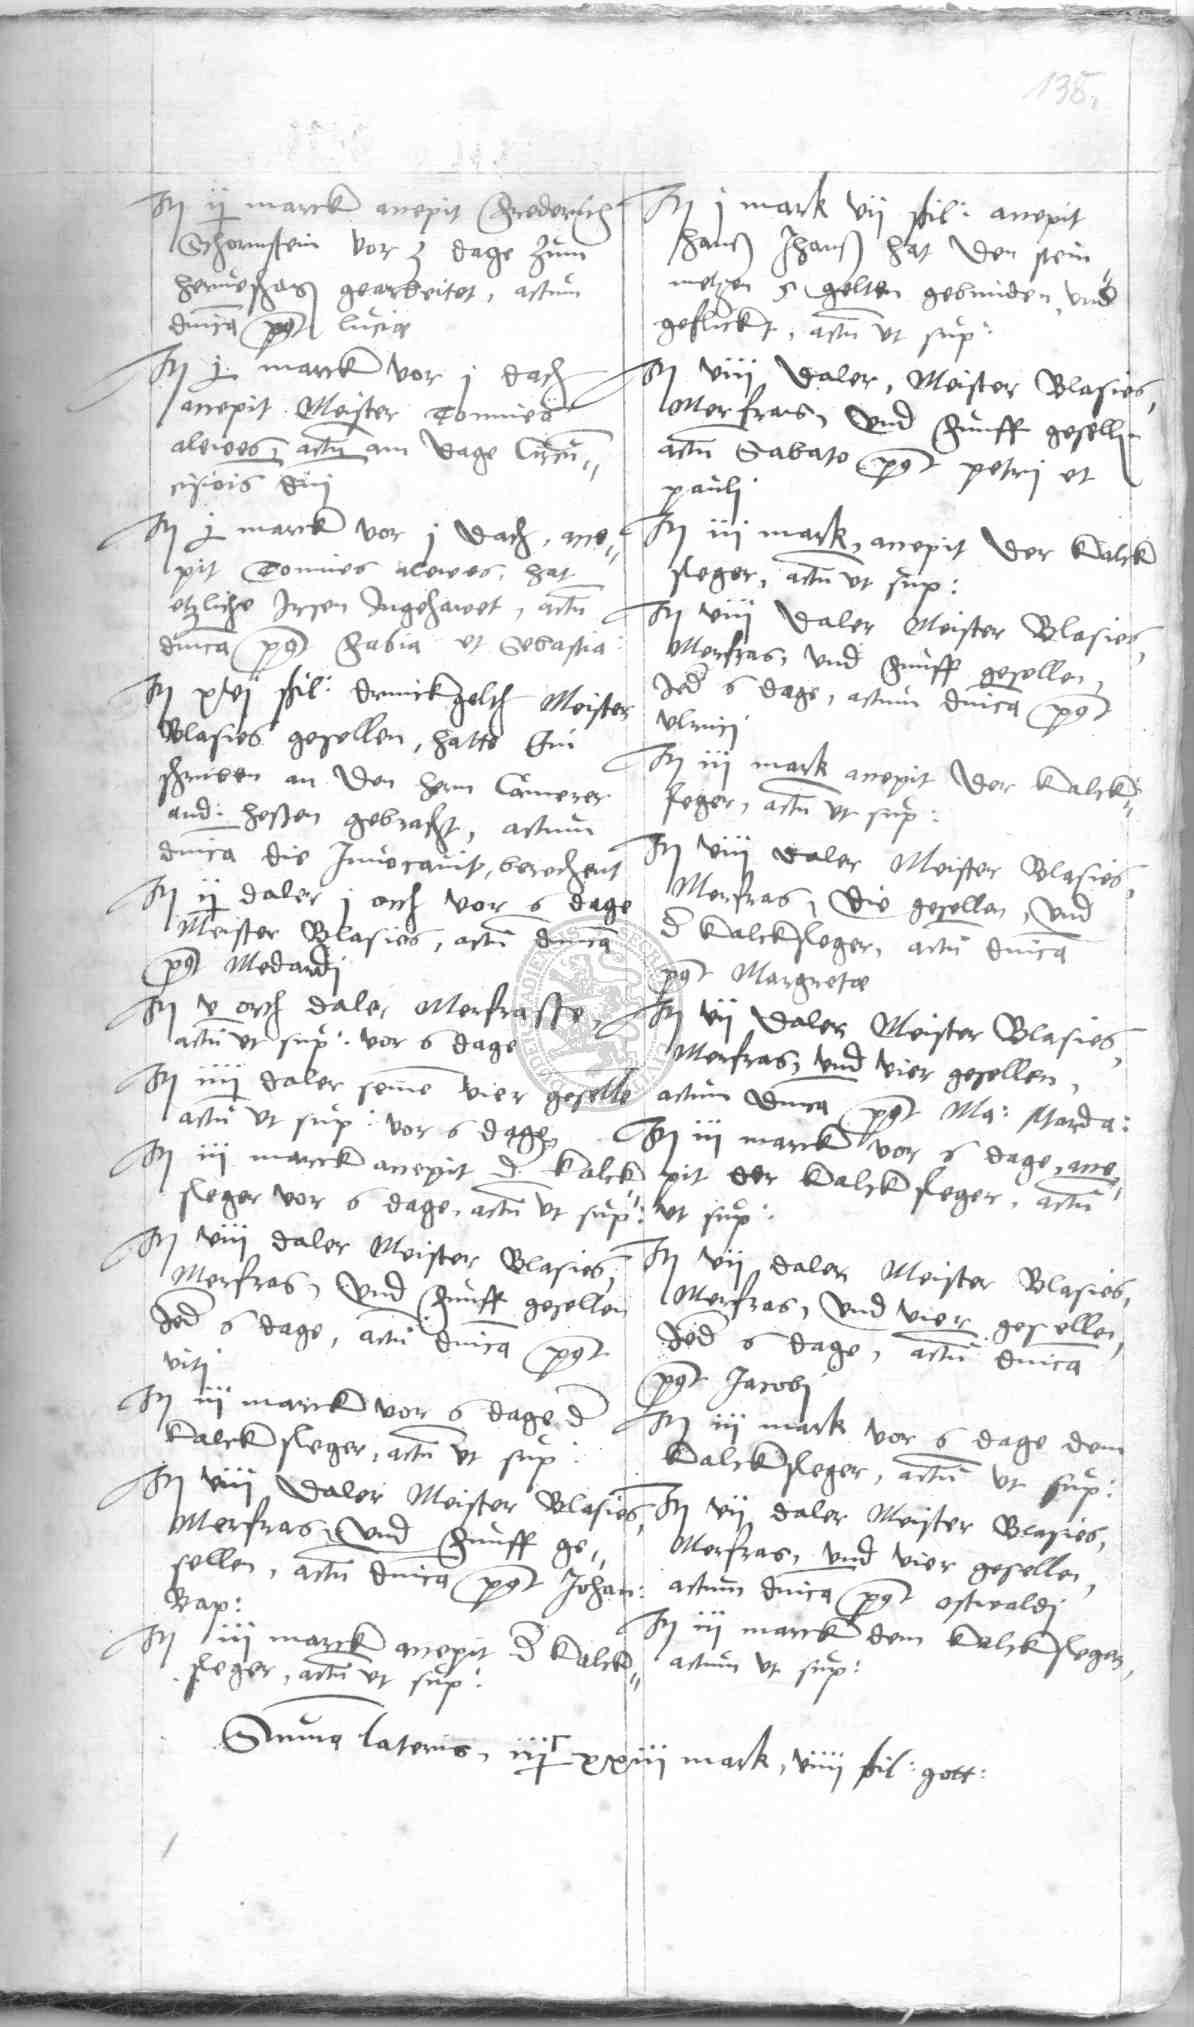 138.
It ij marck accepit Frederich
Schornstein vor 3 dage zum
gearbeitet, actum
dnica post lucia
It j marck vor j dach
accepit Meister Tonnies
alewes, actu am dage Circu„
cisiois dni
It j marck vor j dach, acce„
pit Tonnies alewes, hat
etzliche Irsen Ingehawet, actu
dnica post Fabia et Sebastia:
It xvij ßil: drinckgelth Meister
Blasies gesellen, hatte Ein
schriben an den hern Camerer
and: heßen gebracht, actum
dnica die Invocauit, berechent
It ij daler j orth vor 6 dage
Meister Blasies, actu dnica
post Medardj
It v orth daler Merfraße,
actu ut sup: vor 6 dage
It iiij daler seine vier geselle
actu ut sup: vor 6 dage
It iij marck accepit d kalck
sleger vor 6 dage, actu ut sup:
It viij daler Meister Blasies,
Merfras, und Funff gesellen
Jed 6 dage, actu dnica post
viti
It iij marck vor 6 dage d
kalcksleger, actu ut sup:
It viij daler Meister Blasies,
Merfras, und Funff ge„
sellen, actu dnica post Johan:
Bap:
It iij marck accepit d kalck„
sleger, actu ut sup:
It j mark vij ßil: accepit
hans Jhans hat den stein„
metzen 5 gelten gebunden, und
geflickt, actu ut sup:
It viij daler, Meister Blasies,
Merfras, und Funff geselln
actu Sabato post petrij et
paulj
It iij mark, accepit der kalck
sleger, actu ut sup:
It viij daler Meister Blasies,
Merfras, und Funff gesellen,
Jed 6 dage, actum dnica post
Ulricj
It iij mark accepit der kalck„
sleger, actu ut sup:
It viij daler Meister Blasies,
Merfras, die gesellen, und
d kalcksleger, actu dnica
post Margretae
It vij daler Meister Blasies,
Merfras, und vier gesellen,
actum dnica post Ma: Mard a:
It iij marck vor 6 dage, acce„
pit der kalcksleger, actu
ut sup:
It vij daler Meister Blasies,
Merfras, und vier gesellen,
Jed 6 dage, actu dnica
post Jacobj
It iij mark vor 6 dage dem
kalcksleger, actu ut sup:
It vij daler Meister Blasies,
Merfras, und vier gesellen,
actum dnica post oswaldj
It iij marck dem kalcksleger,
actum ut sup:
Summa lateris, iiij xxiii mark, viiij ßil: gott: